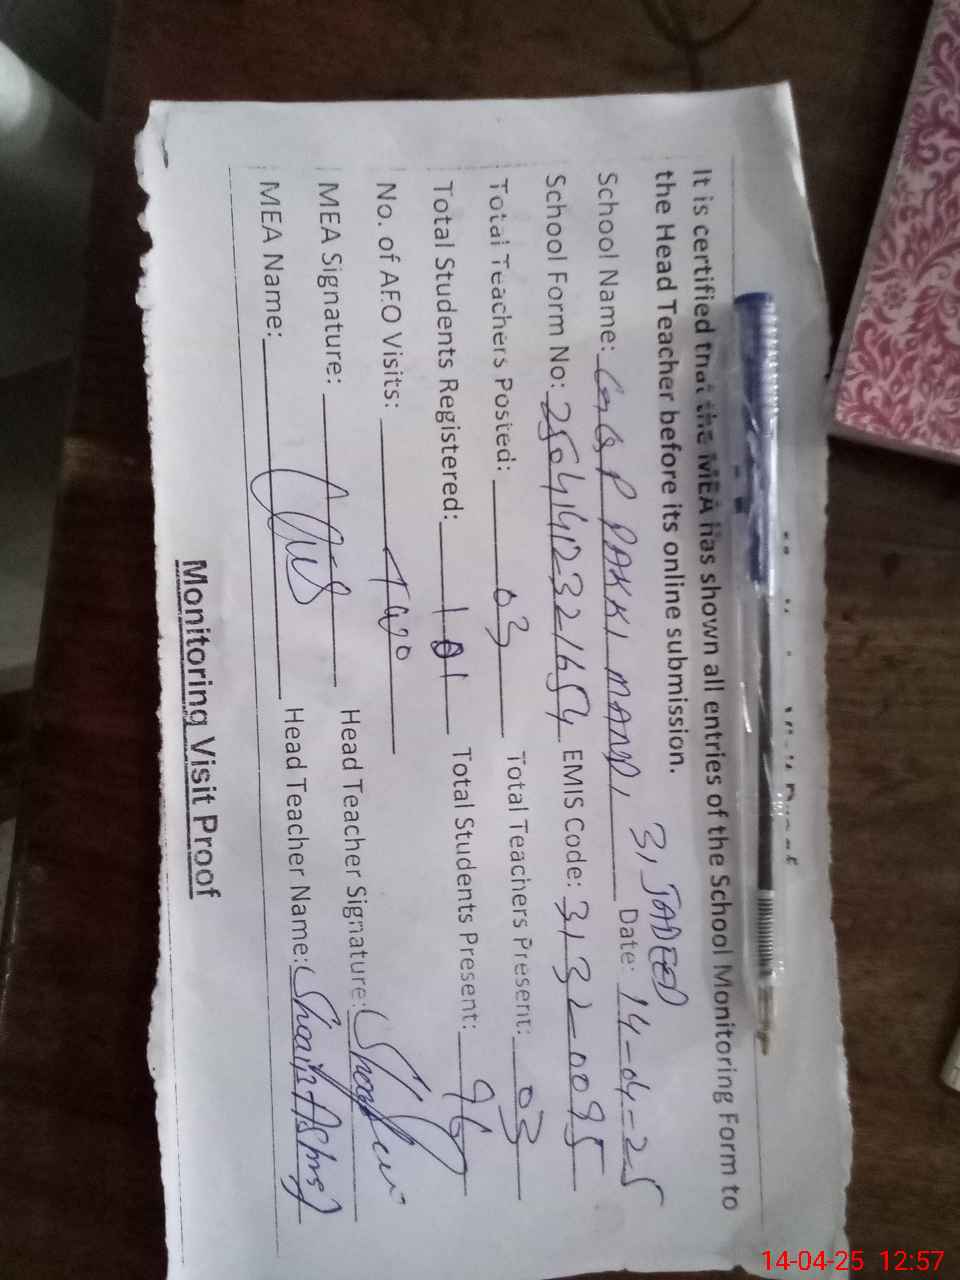 It is certified that the MEA has shown all entries of the School Monitoring Form to
the Head Teacher before its online submission.
3, JADEED
School Name: GGP PAKKI MANDI, Date: 14-04-25
School Form No: 2504141232 1654 EMIS Code: 3132-0095
Total Teachers Posted: 03 Total Teachers Present: 03
Total Students Registered: 101 Total Students Present: 96
No. of AEO Visits: Two
MEA Signature: Head Teacher Signature:
MEA Name: Head Teacher Name:
Monitoring Visit Proof
14-04-25 12:57